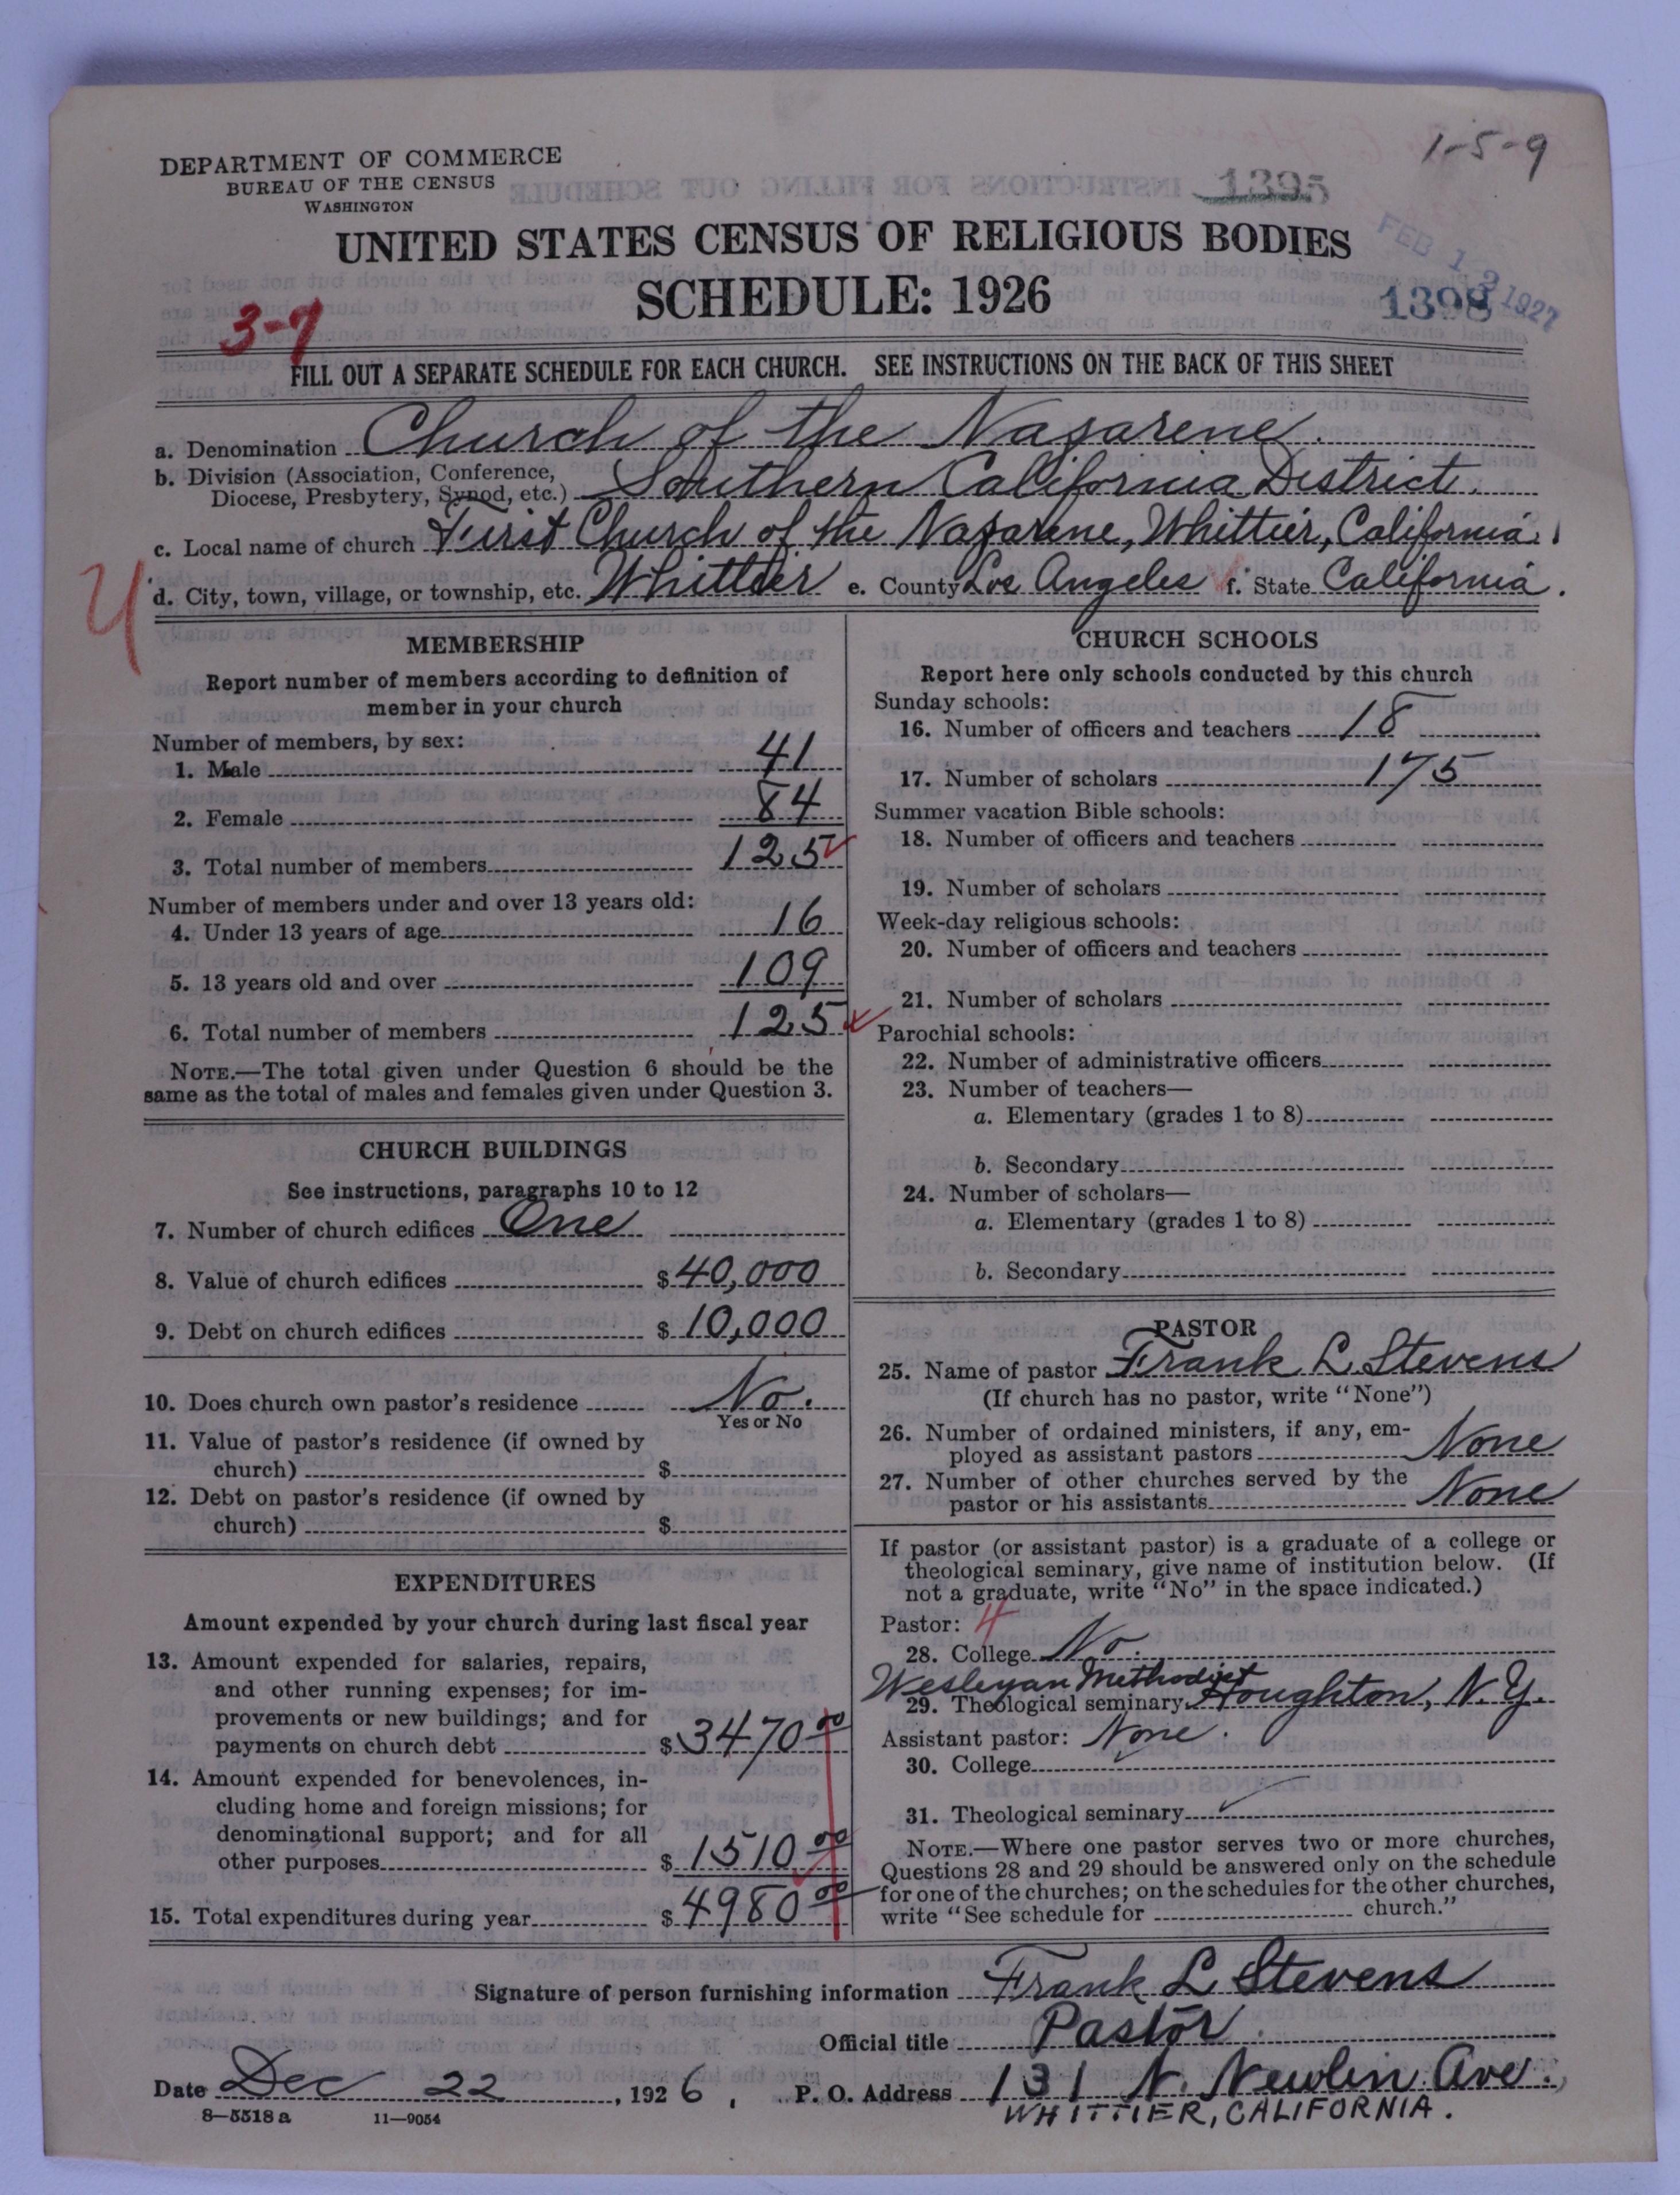 1-5-9
DEPARTMENT OF COMMERCE
BUREAU OF THE CENSUS
WASHINGTON
1395
UNITED STATES CENSUS OF RELIGIOUS BODIES
SCHEDULE: 1926
FEB 12 1927
1398
3-7
FILL OUT A SEPARATE SCHEDULE FOR EACH CHURCH. SEE INSTRUCTIONS ON THE BACK OF THIS SHEET
a. Denomination Church of the Nazarene.
b. Division (Association, Conference,
Diocese, Presbytery, Synod, etc.) Southern California District.
c. Local name of church First Church of the Nazarene, Whittier, California.
d. City, town, village, or township, etc. Whittier e. County Los Angeles f. State California.
MEMBERSHIP
Report number of members according to definition of
member in your church
Number of members, by sex:
1. Male 41
2. Female 84
3. Total number of members 125
Number of members under and over 13 years old:
4. Under 13 years of age 16
5. 13 years old and over 109
6. Total number of members 125
NOTE.—The total given under Question 6 should be the
same as the total of males and females given under Question 3.
CHURCH BUILDINGS
See instructions, paragraphs 10 to 12
7. Number of church edifices One
8. Value of church edifices $ 40,000
9. Debt on church edifices $ 10,000
10. Does church own pastor's residence No.
Yes or No
11. Value of pastor's residence (if owned by
church) $
12. Debt on pastor's residence (if owned by
church) $
EXPENDITURES
Amount expended by your church during last fiscal year
13. Amount expended for salaries, repairs,
and other running expenses; for im-
provements or new buildings; and for
payments on church debt $ 3470 00
14. Amount expended for benevolences, in-
cluding home and foreign missions; for
denominational support; and for all
other purposes $ 1510 00
15. Total expenditures during year $ 4980 00
CHURCH SCHOOLS
Report here only schools conducted by this church
Sunday schools:
16. Number of officers and teachers 18
17. Number of scholars 175
Summer vacation Bible schools:
18. Number of officers and teachers
19. Number of scholars
Week-day religious schools:
20. Number of officers and teachers
21. Number of scholars
Parochial schools:
22. Number of administrative officers
23. Number of teachers—
a. Elementary (grades 1 to 8)
b. Secondary
24. Number of scholars—
a. Elementary (grades 1 to 8)
b. Secondary
PASTOR
25. Name of pastor Frank L. Stevens
(If church has no pastor, write "None")
26. Number of ordained ministers, if any, em-
ployed as assistant pastors None
27. Number of other churches served by the
pastor or his assistants None
If pastor (or assistant pastor) is a graduate of a college or
theological seminary, give name of institution below. (If
not a graduate, write "No" in the space indicated.)
Pastor: 4
28. College No.
Wesleyan Methodist
29. Theological seminary Houghton, N.Y.
Assistant pastor: None.
30. College
31. Theological seminary
NOTE.—Where one pastor serves two or more churches,
Questions 28 and 29 should be answered only on the schedule
for one of the churches; on the schedules for the other churches,
write "See schedule for church."
Signature of person furnishing information Frank L. Stevens
Official title Pastor.
Date Dec 22, 1926, P. O. Address 131 N. Newlin Ave.,
WHITTIER, CALIFORNIA.
8—5518 a 11—9054